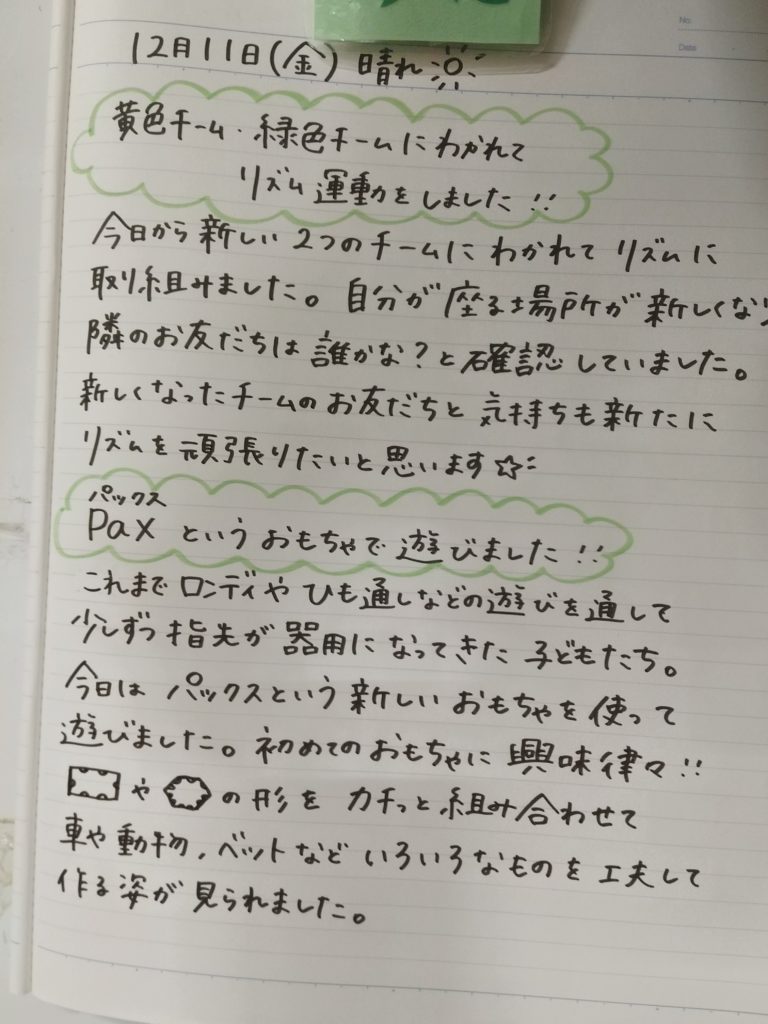 No.
Date
12月11日(金) 晴れ
黄色チーム・緑色チームにわかれて
リズム運動をしました!!
今日から新しい2つのチームにわかれてリズムに
取り組みました。自分が座る場所が新しくなり
隣のお友だちは誰かな?と確認していました。
新しくなったチームのお友だちと気持ちも新たに
リズムを頑張りたいと思います☆
パックス
Paxというおもちゃで遊びました!!
これまでロンディやひも通しなどの遊びを通して
少しずつ指先が器用になってきた子どもたち。
今日はパックスという新しいおもちゃを使って
遊びました。初めてのおもちゃに興味律々!!
やの形をカチっと組み合わせて
車や動物、ベットなどいろいろなものを工夫して
作る姿が見られました。